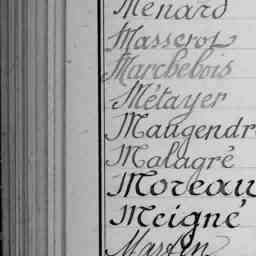 Ménard
Masserot
Marchebois
Métayer
Maugendr
Malagré
Moreau
Meigné
Martin